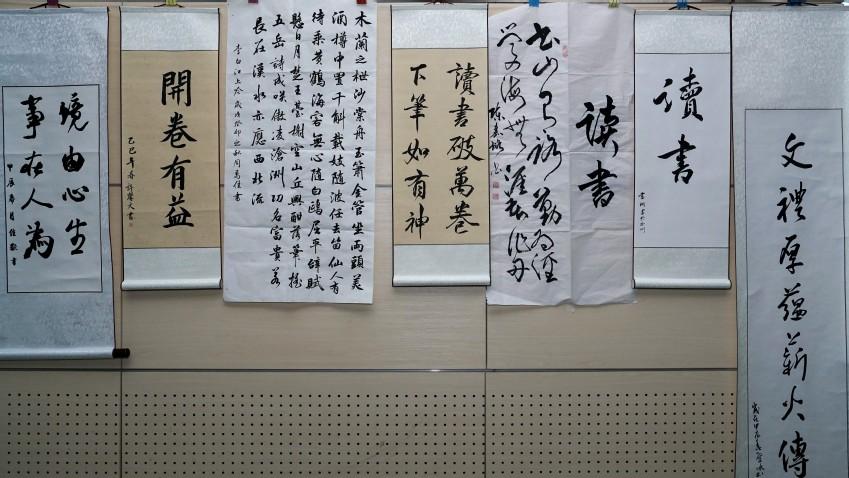 境由心生
事在人為
開卷有益
乙巳年春許學文書
木蘭之枻沙棠舟玉簫金管坐兩頭美
酒樽中置千斛載妓隨波任去留仙人有
待乘黃鶴海客無心隨白鷗屈平辭賦
懸日月楚王臺榭空山丘興酣落筆搖
五岳詩成咲傲凌滄洲功名富貴若
長在漢水亦應西北流
讀書破萬卷
下筆如有神
读書
書山有路勤為徑
学海無涯苦作舟
讀書
文禮厚蘊薪火傳